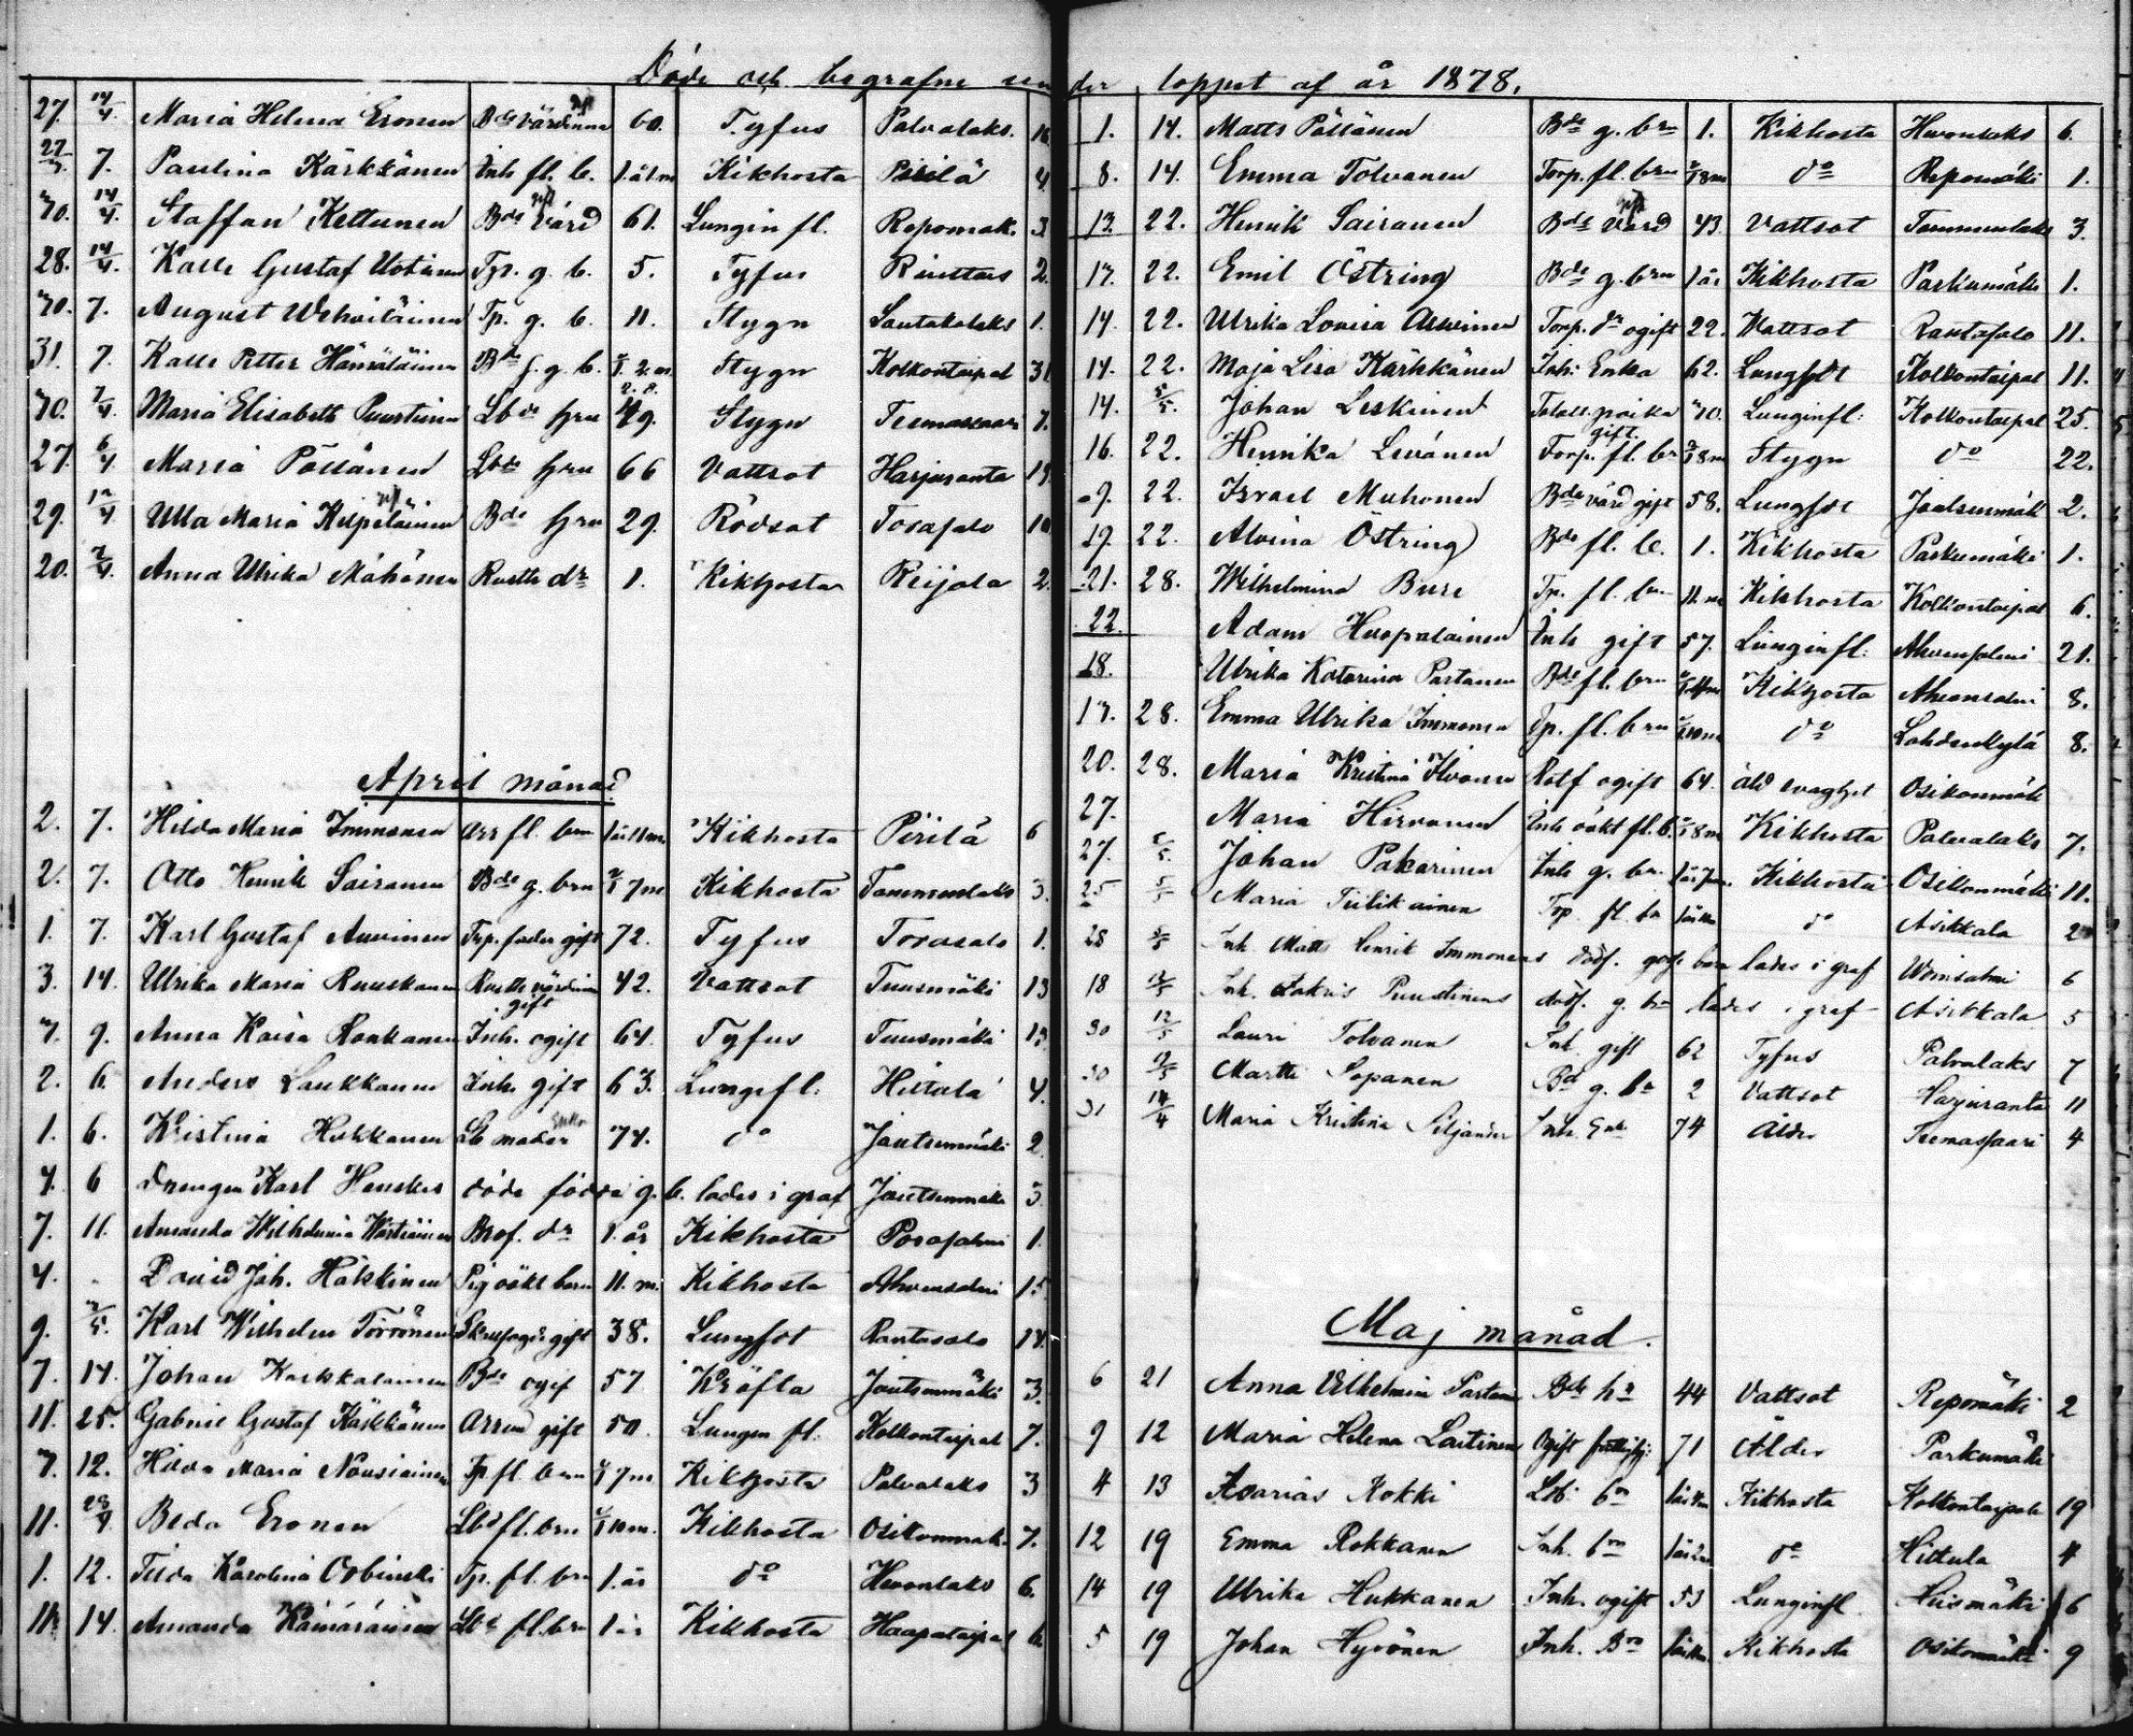 Döde och begrafne under loppet af år 1878.
27. 14/4. Maria Helena Eronen Bde värdinna gift 60. Tyfus Palvalaks. 16
27/3. 7. Paulina Kärkkänen Inh fl. b. 1. år 1. m Kikhosta Pirilä 4.
30. 14/4. Staffan Kettunen Bde värd gift 61. Lungin fl. Repomäk. 3
28. 14/4. Kalle Gustaf Uotinen Tp. g. b. 5. Tyfus 2.
30. 7. August Wehviläinen Tp. g. b. 11. Stygn Lautakotaks 1.
31. 7. Kalle Petter Hämäläinen Bde f. g. b. 2. m. Stygn Kolkontaipal 31
30. 7/4. Maria Elisabeth Puustinen Lbde hru 49. Stygn Teemassaari 7.
27. 6/4. Maria Pössänen Lbde hru 66 Vattsot Harjuranta 19.
29. 12/4 Ulla Maria Kilpeläinen gift Bde hru 29. Rödsot Torasalo 10
20. 7/4. Anna Ulrika Mähönen Rusth dr 1. Kikhosta Reijola 2.
April månad
2. 7. Hilda Maria Immonen Arr fl. brn 1 år 11 m Kikhosta Pirilä 6
2. 7. Otto Henrik Sairanen Bde g. brn 7 m Kikhosta Tammenlaks 3.
1. 7. Karl Gustaf Auvinen Trp. fader gift 72. Tyfus Torasalo 1.
3. 14. Ulrika Maria Ruuskanen Rusth värdinna gift 42. Vattsot Tuusmäki 13
7. 9. Anna Kaisa Ronkanen Inh. ogift 64. Tyfus Tuusmäki 13.
2. 6. Anders Laukkanen Inh. gift 63. Lungefl. Hiltula 4.
1. 6. Kristina Hukkanen Lb moder Enka 74. do Joutsenmäki 2.
4. 6 Drengen Karl Henskes döde födde g. b. lades i graf Joutsenmäki 3
7. 11. Amanda Wilhelmina Wästiäinen Brof. dr 1. år Kikhosta Porosalmi 1.
4. David Joh. Häkkinen Pig oäkt barn 11. m. Kikhosta Ahvensalmi 15
9. 7/5. Karl Wilhelm Törrönen gift 38. Lungsot Rantasalo 14.
7. 14. Johan Karkkalainen Bde ogif 57 Kräfta Joutsenmäki 3.
11. 25. Gabriel Gustaf Käkkänen Arren gift 50. Lungen fl. Kolkontaipal 7.
7. 12. Hilda Maria Nousiainen Tp fl. brn 7 m Kikhosta Palvalaks 3
11. 23/4. Beda Eronen Lbd fl. brn 10 m. Kikhosta Osikonmäk. 7.
1. 12. Tilda Karolina Orbinski Tp. fl. brn 1. år do Hevonlaks 6.
11. 14. Amanda Kämäräinen Lbd fl. brn 1 år Kikhosta Haapataipal 6
1. 14. Matts Pössänen Bde g. brn 1. Kikhosta Hevonlaks 6.
8. 14. Emma Tolvanen Torp. fl. brn 8 m do Repomäki 1.
13. 22. Henrik Sairanen Bde värd gift 43. Vattsot Tammenlaks 3.
17. 22. Emil Östring Bde g. brn 1 år Kikhosta Parkumäki 1.
14. 22. Ulrika Lovisa Auvinen Torp. dr ogift 22. Wattsot Rantasalo 11.
14. 22. Maja Lisa Kärkkänen Inh. Enka 62. Lungsot Kolkontaipal 11.
14. 5/5. Johan Leskinen 70. Lunginfl. Kolkontaipal 25.
16. 22. Henrika Levänen Torp. fl. brn 8 m Stygn do 22.
9. 22. Israel Muhonen Bde värd gift 58. Lungsot Joutsenmäk 2.
19. 22. Alvina Östring Bde fl. b. 1. Kikhosta Parkumäki 1.
21. 28. Wilhelmina Bure Tp. fl. brn 11. m Kikhosta Kolkontaipal 6.
22. Adam Huopalainen Inh gift 57. Lunginfl. Ahvensalmi 21.
18. Ulrika Katarina Partanen Bde fl. brn Kikhosta Ahvensalmi 8.
17. 28. Emma Ulrika Immonen Tp. fl. brn 10 m do Lohdenkylä 8.
20. 28. Maria Kristina Ilvonen Rotf ogift 64. Åld svaghet Osikonmäk
27. Maria Hirvonen Inh oäkt fl. b. 8 m Kikhosta Palvalaks 7.
27. 5/5. Johan Pakarinen Inh g. br. Kikhosta Osikonmäki 11.
25 5/5 Maria Tiilikainen Trp. fl. br do Asikkala 2
28 5/5 Inh Matts Henrik Immonens dödf. gosse barn lades i graf Woinsalmi 6
18 Inh. Zakris Puustinens dödf. g. br lades i graf Asikkala 5
30 12/5 Lauri Tolvanen Inh. gift 62 Tyfus Palvalaks 7
30 Martti Sopanen Bd g. br 2 Vattsot Harjuranta 11
31 14/4 Maria Kristina Siljander Inh. Enk 74 Ålder Teemassaari 4
Maj månad.
6 21 Anna Vilhelmina Partanen Bde hu 44 Vattsot Repomäki 2
9 12 Maria Helena Laitinen Ogift fattighj. 71 Ålder Parkumäki
4 13 Asarias Kokki Lb. brn Kikhosta Kolkontaipale 19
12 19 Emma Rokkanen Inh. brn 1 år 2 m do Hiltula 4
14 19 Ulrika Hukkanen Inh. ogift 53 Lunginfl. Hiismäki 6
5 19 Johan Hyvönen Inh. Brn Kikhosta Osikonmäki 9